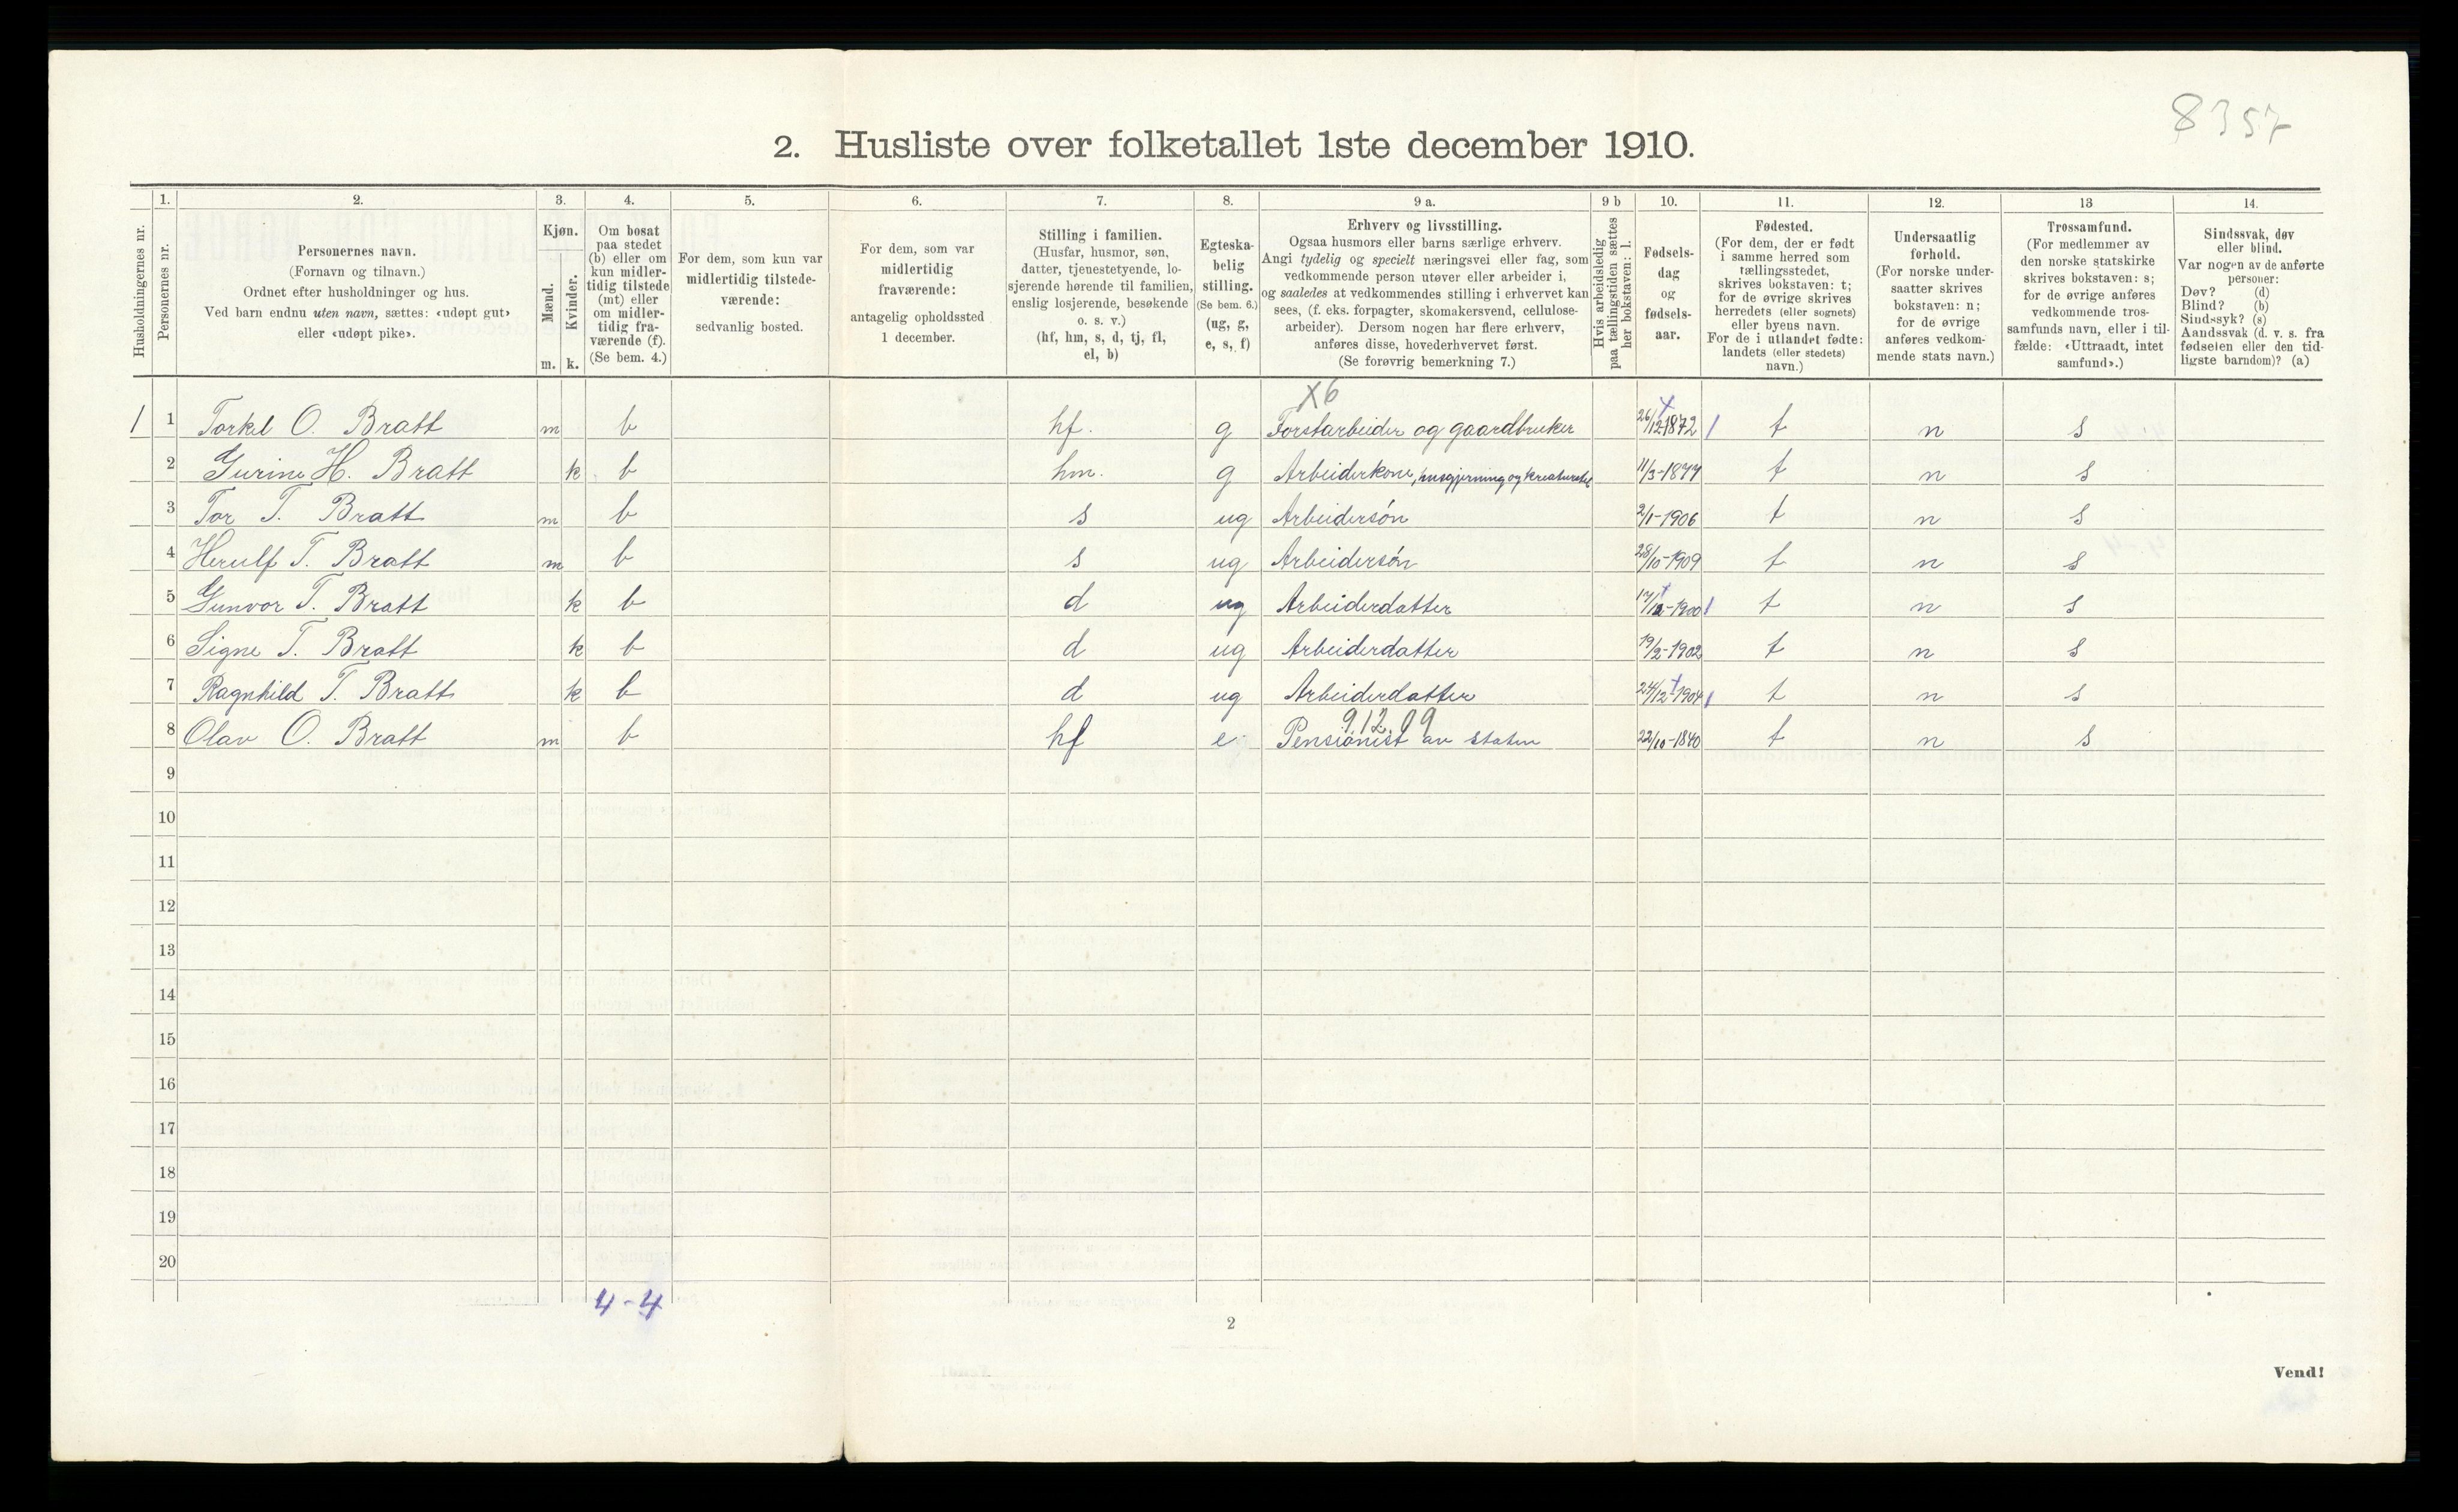 8357
2. Husliste over folketallet 1ste december 1910.
Husholdningernes nr.
1.
Personernes nr.
2.
Personernes navn.
(Fornavn og tilnavn.)
Ordnet efter husholdninger og hus.
Ved barn endnu uten navn, sættes: «udøpt gut»
eller «udøpt pike».
3.
Kjøn.
Mænd.
Kvinder.
m. k.
4.
Om bosat
paa stedet
(b) eller om
kun midler-
tidig tilstede
(mt) eller
om midler-
tidig fra-
værende (f).
(Se bem. 4.)
5.
For dem, som kun var
midlertidig tilstede-
værende:
sedvanlig bosted.
6.
For dem, som var
midlertidig
fraværende:
antagelig opholdssted
1 december.
7.
Stilling i familien.
(Husfar, husmor, søn,
datter, tjenestetyende, lo-
sjerende hørende til familien,
enslig losjerende, besøkende
o. s. v.)
(hf, hm, s, d, tj, fl,
el, b)
8.
Egteska-
belig
stilling.
(Se bem. 6.)
(ug, g,
e, s, f)
9 a.
Erhverv og livsstilling.
Ogsaa husmors eller barns særlige erhverv.
Angi tydelig og specielt næringsvei eller fag, som
vedkommende person utøver eller arbeider i,
og saaledes at vedkommendes stilling i erhvervet kan
sees, (f. eks. forpagter, skomakersvend, cellulose-
arbeider). Dersom nogen har flere erhverv,
anføres disse, hovederhvervet først.
(Se forøvrig bemerkning 7.)
9 b
Hvis arbeidsledig
paa tællingstiden sættes
her bokstaven: l.
10.
Fødsels-
dag
og
fødsels-
aar.
11.
Fødested.
(For dem, der er født
i samme herred som
tællingsstedet,
skrives bokstaven: t;
for de øvrige skrives
herredets (eller sognets)
eller byens navn.
For de i utlandet fødte:
landets (eller stedets)
navn.)
12.
Undersaatlig
forhold.
(For norske under-
saatter skrives
bokstaven: n;
for de øvrige
anføres vedkom-
mende stats navn.)
13
Trossamfund.
(For medlemmer av
den norske statskirke
skrives bokstaven: s;
for de øvrige anføres
vedkommende tros-
samfunds navn, eller i til-
fælde: «Uttraadt, intet
samfund».)
14.
Sindssvak, døv
eller blind.
Var nogen av de anførte
personer:
Døv? (d)
Blind? (b)
Sindssyk? (s)
Aandssvak (d. v. s. fra
fødselen eller den tid-
ligste barndom)? (a)
X6
1 1 Torkel O. Bratt m b hf. g Forstarbeider og gaardbruker 26/12-1872 t n s
2 Gurine H. Bratt k b hm. g Arbeiderkone, husgjerning og kreaturstel 11/3-1877 t n s
3 Tor T. Bratt m b s ug Arbeidersøn 2/1-1906 t n s
4 Herulf T. Bratt m b s ug Arbeidersøn 28/10-1909 t n s
5 Gunvor T. Bratt k b d ug Arbeiderdatter 17/12-1900 t n s
6 Signe T. Bratt k b d ug Arbeiderdatter 19/2-1902 t n s
7 Ragnhild T. Bratt k b d ug Arbeiderdatter 24/12-1904 t n s
91209
8 Olav O. Bratt m b hf e Pensionist av staten 22/10-1840 t n s
9
10
11
12
13
14
15
16
17
18
19
20
4-4
2
Vend!